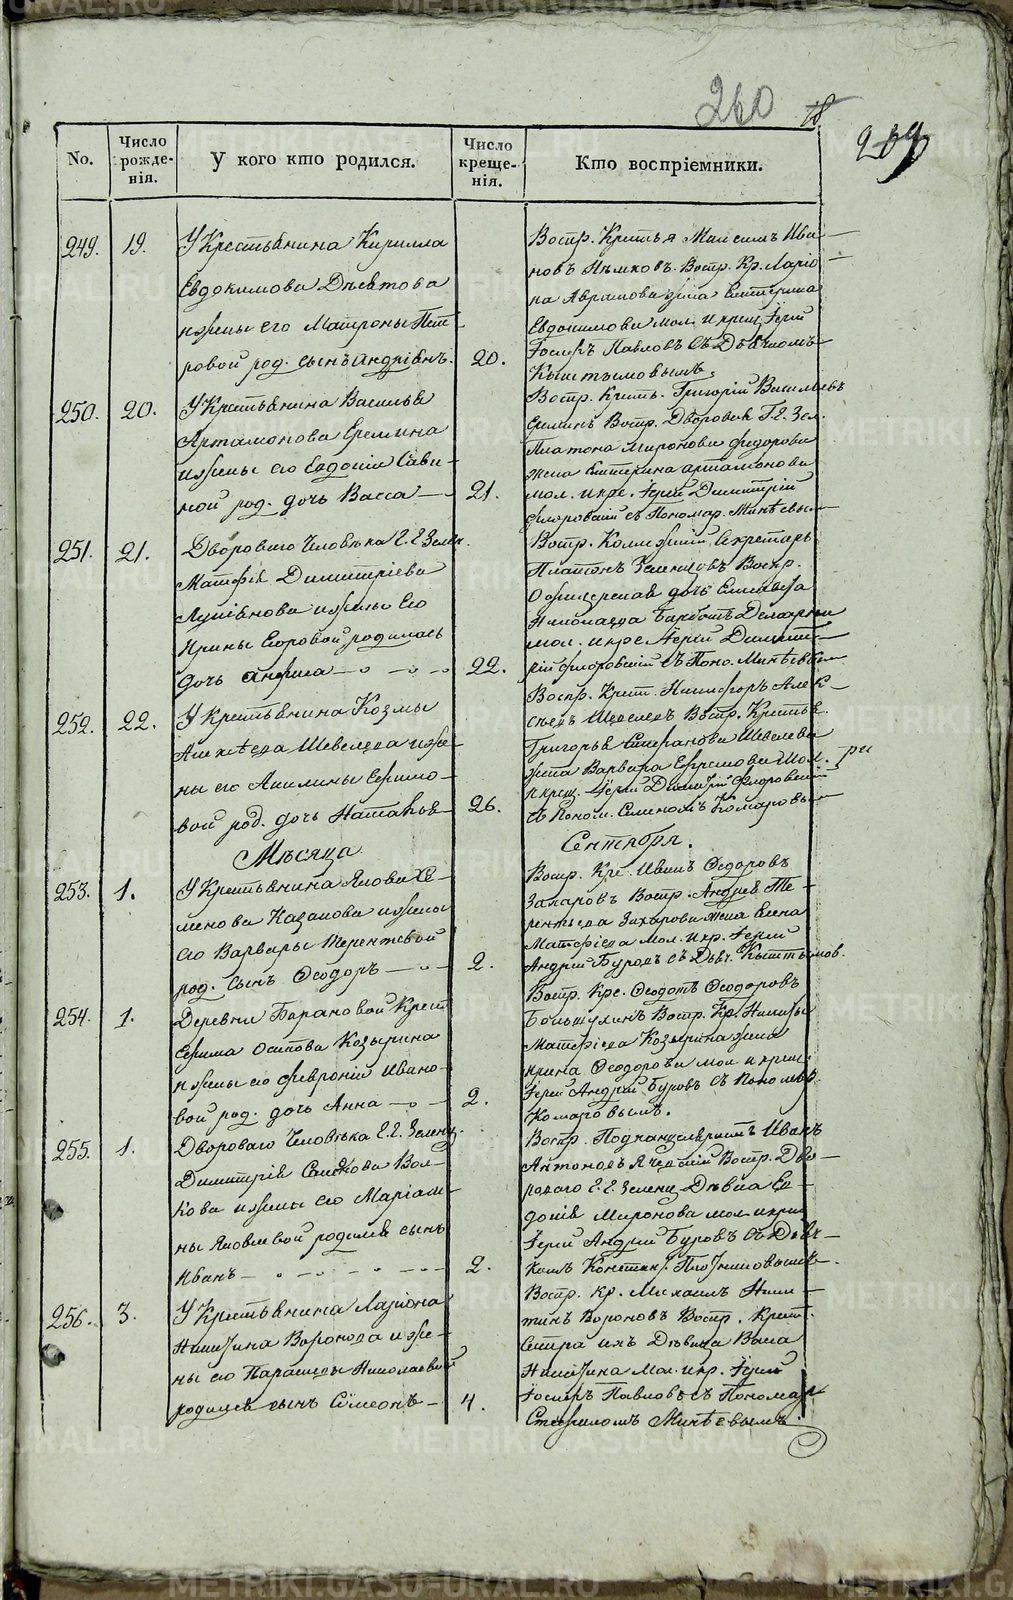 260
18
209
No.
Число рожде-нія.
У кого кто родился.
Число креще-нія.
Кто воспріемники.
249. 19. У Крестьянина Кирилла
Евдокимова Девятова
и жены его Матроны Пет-
ровой род. сынъ Андріянъ. 20.
Востр. Крестья Максимъ Ива-
новъ Востр. Кр. Ларіо-
на Аврамова жена Екатерина
Евдокимова мол. и крещ. Іерей
Іосифъ Павловъ съ Дьячкомъ
Кыштымовымъ.
250. 20. У Крестьянина Василья
Артамонова Еремина
и жены его Евдокіи Сави-
ной род. дочь Васса 21.
Востр. Крест. Григорій Васильевъ
Ереминъ Востр. Двороваго Г. Е. Зел.
Платона Миронова Федорова
жена Екатерина Артамонова
мол. и кре. Іерей Димитрій
Флоровскій съ Пономар. Минѣевы-
251. 21. Двороваго Человѣка Г. Е. Зелен.
Матфѣя Димитріева
Лукіянова и жены Его
Ирины Егоровой родилась
дочь Анфиса 22.
Востр. Коллежскій Секретарь
Платонъ Зеленцовъ Востр.
дочь Елисавета
Николаева
мол. и кре. Іерей Димит-
рій Флоровскій съ Поно. Минѣевым
252. 22. У Крестьянина Козмы
Алексѣева Шевелева и же-
ны его Акилины Ефимо-
вой род. дочь Наталья 26.
Востр. Крест. Никифоръ Алек-
сѣевъ Шевелевъ Востр. Крестья.
Григорья Степанова Шевелева
жена Варвара Ефремова Мол.
и крещ. Іерей Димитрій Флоровскій
съ Поном. Симеономъ Комаровы-
Мѣсяца Сентября.
253. 1. У Крестьянина Якова Се-
менова Казакова и жены
его Варвары Терентьевой
род. сынъ Ѳеодоръ 2.
Востр. Кре. Иванъ Ѳеодоровъ
Захаровъ Востр. Андрея Те-
рентьева Захарова жена Елена
Матфѣева мол. и кр. Іерей
Андрей Буровъ съ Дьяч. Кыштымов.
254. 1. Деревни Барановой Крест
Ефима Осипова Козырина
и жены его Февроніи Ивано-
вой род. дочь Анна 2.
Востр. Кре. Ѳеодотъ Ѳеодоровъ
Востр. Кр. Никиты
Матфѣева Козырина жена
Ирина Ѳеодорова мол. и крещ.
Іерей Андрей Буровъ съ Пономар.
Комаровымъ.
255. 1. Двороваго Человѣка Г. Е. Зеленц.
Димитрія Семенова Вол-
кова и жены его Маріам-
ны Яковлевой родился сынъ
Иванъ 2.
Востр. Подканцеляристъ Иванъ
Антоновъ Востр. Дво-
роваго Г. Е. Зелен. Дѣвка Ев-
докія Миронова мол. и крещ.
Іерей Андрей Буровъ съ Дьяч-
комъ Констант. Плотниковымъ.
256. 3. У Крестьянина Ларіона
Никитина Воронова и же-
ны его Параскевы Николаевой
родился сынъ Симеонъ 4.
Востр. Кр. Михаилъ Ники-
тинъ Вороновъ Востр. Крест.
Сестра ихъ Дѣвица Васса
Никитина Мол. и кр. Іерей
Іосифъ Павловъ съ Пономар
Стефаномъ Минѣевымъ.
METRIKI.GASO-URAL.RU